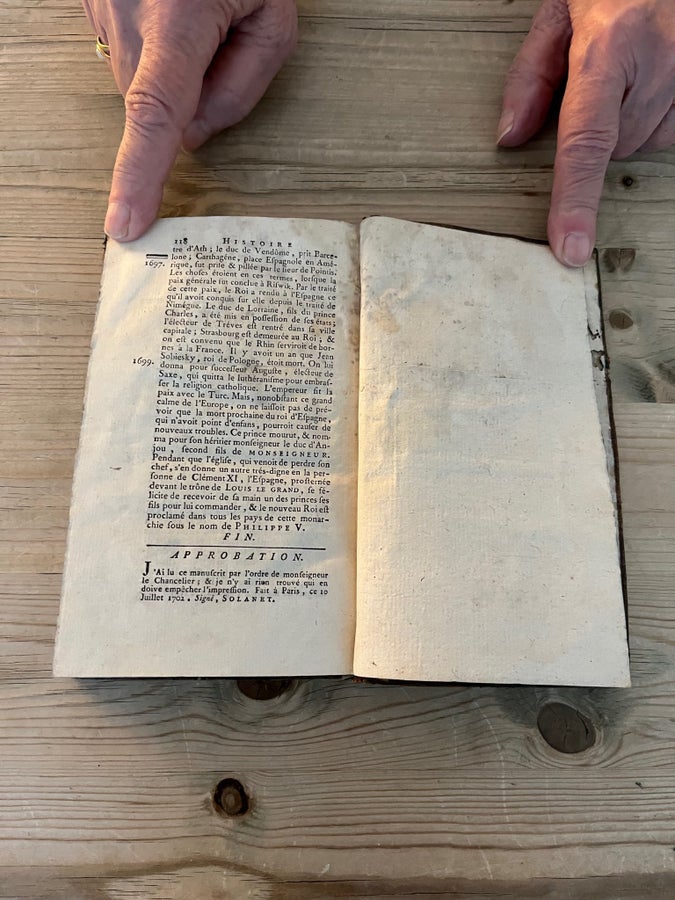 118 HISTOIRE
tre d'Ath ; le duc de Vendôme, prit Barce-
lone ; Carthagène, place Espagnole en Amé-
1697. rique, fut prise & pillée par le sieur de Pointis.
Les choses étoient en ces termes, lorsque la
paix générale fut conclue à Riswik. Par le traité
de cette paix, le Roi a rendu à l'Espagne ce
qu'il avoit conquis sur elle depuis le traité de
Nimégue. Le duc de Lorraine, fils du prince
Charles, a été mis en possession de ses états ;
l'électeur de Tréves est rentré dans sa ville
capitale ; Strasbourg est demeurée au Roi ; &
on est convenu que le Rhin serviroit de bor-
nes à la France. Il y avoit un an que Jean
1699. Sobiesky, roi de Pologne, étoit mort. On lui
donna pour successeur Auguste, électeur de
Saxe, qui quitta le luthéranisme pour embras-
ser la religion catholique. L'empereur fit la
paix avec le Turc. Mais, nonobstant ce grand
calme de l'Europe, on ne laissoit pas de pré-
voir que la mort prochaine du roi d'Espagne,
qui n'avoit point d'enfans, pourroit causer de
nouveaux troubles. Ce prince mourut, & nom-
ma pour son héritier monseigneur le duc d'An-
jou, second fils de MONSEIGNEUR.
Pendant que l'église, qui venoit de perdre son
chef, s'en donne un autre très-digne en la per-
sonne de Clément XI, l'Espagne, prosternée
devant le trône de LOUIS LE GRAND, se fé-
licite de recevoir de sa main un des princes ses
fils pour lui commander, & le nouveau Roi est
proclamé dans tous les pays de cette monar-
chie sous le nom de PHILIPPE V.
FIN.
APPROBATION.
J'Ai lu ce manuscrit par l'ordre de monseigneur
le Chancelier ; & je n'y ai rien trouvé qui en
doive empêcher l'impression. Fait à Paris, ce 10
Juillet 1702. Signé, SOLANET.